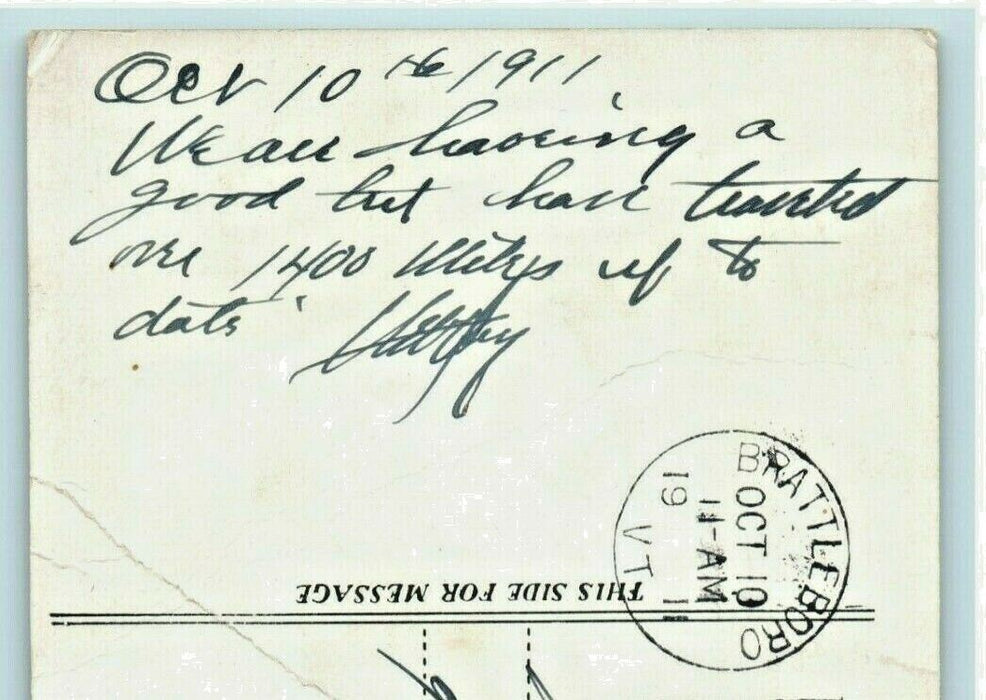 Oct 10th 1911
We are having a
good but have traveled
over 1400 Miles up to
date
THIS SIDE FOR MESSAGE
BRATTLEBORO
OCT 10
11-AM
19 11
VT